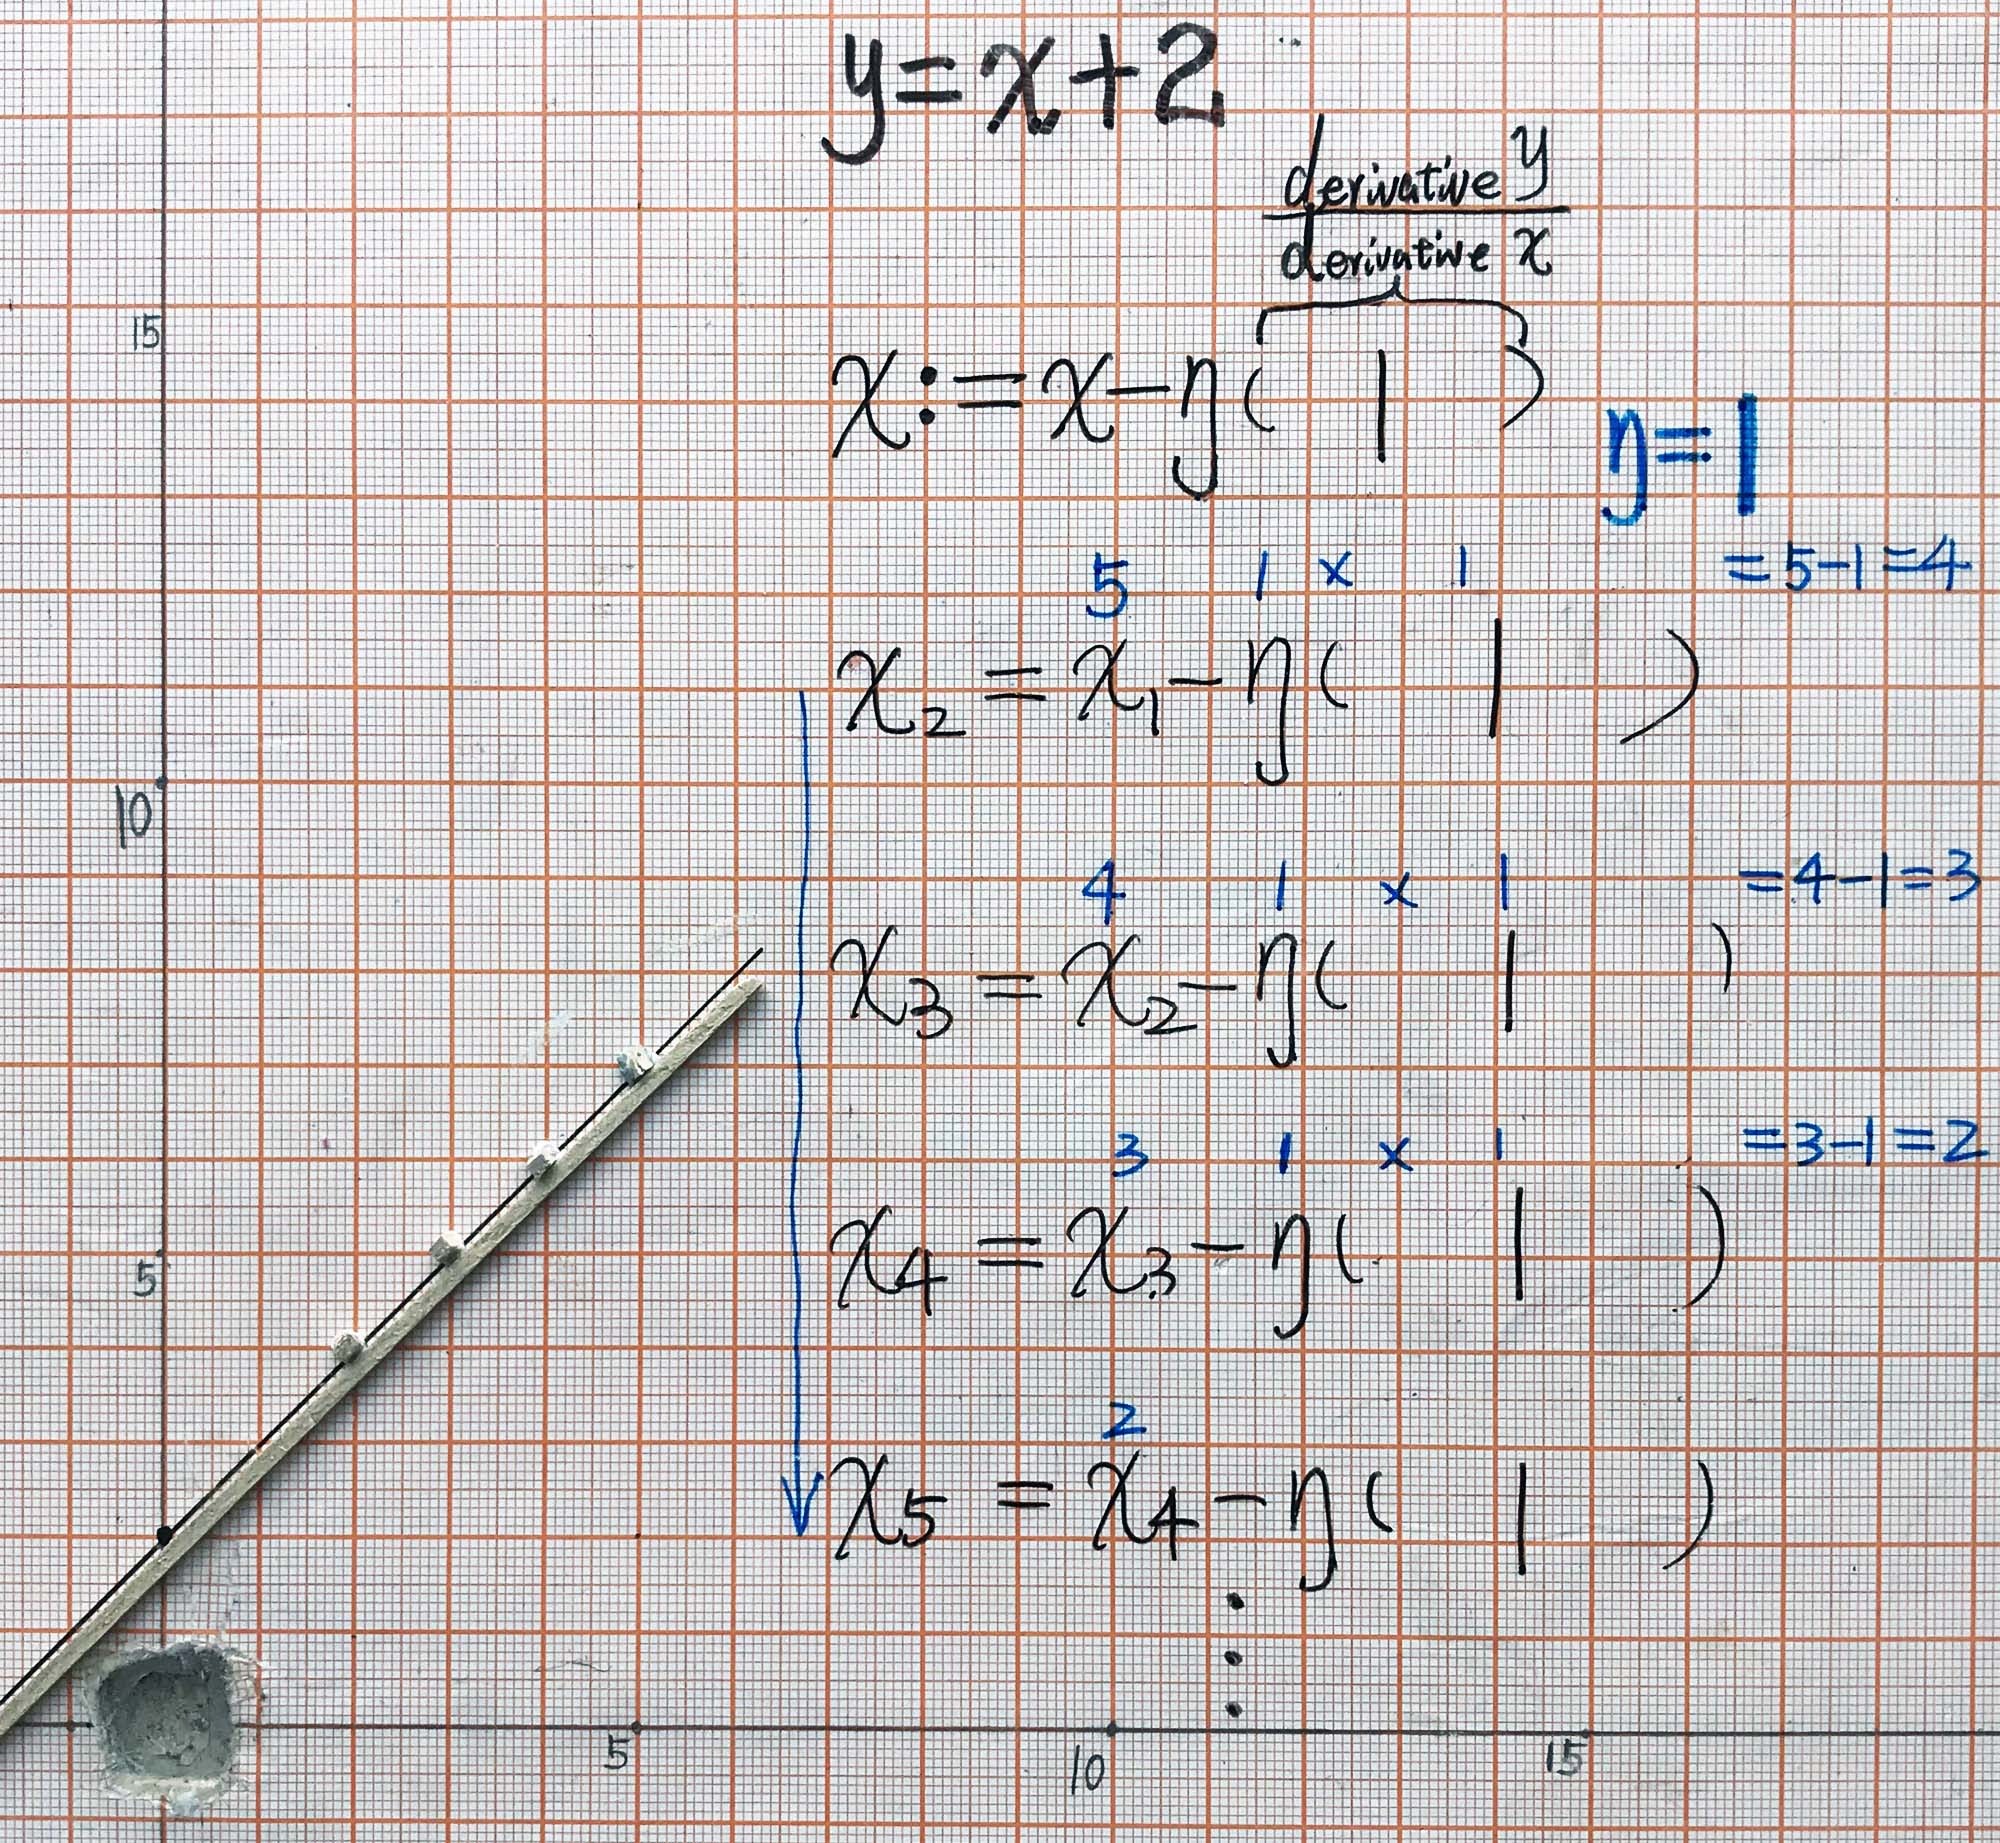 y=x+2
derivative y
derivative x
15
x:=x-η( 1 )
η=1
5 1 x 1 =5-1=4
x₂ = x₁-η( 1 )
10
4 1 x 1 =4-1=3
x₃ = x₂-η( 1 )
3 1 x 1 =3-1=2
x₄ = x₃-η( 1 )
5
2
x₅ = x₄-η( 1 )
5 10 15